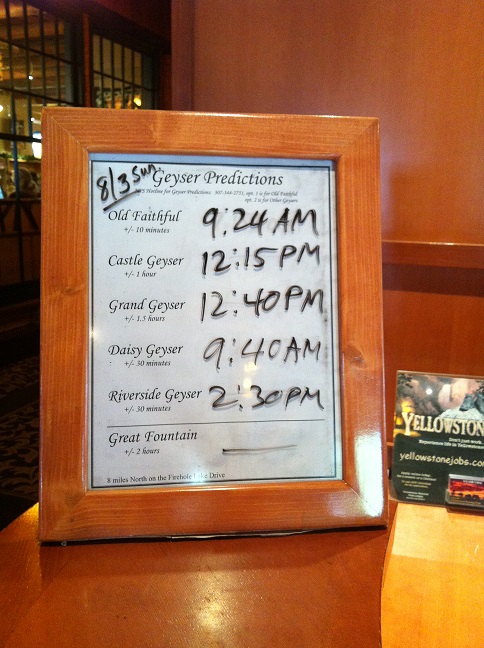 8/3 Sun
Geyser Predictions
Hotline for Geyser Predictions 307-344-2751, opt. 1 is for Old Faithful
opt. 2 is for Other Geysers
Old Faithful 9:24 AM
+/- 10 minutes
Castle Geyser 12:15 PM
+/- 1 hour
Grand Geyser 12:40 PM
+/- 1.5 hours
Daisy Geyser 9:40 AM
+/- 30 minutes
Riverside Geyser 2:30 PM
+/- 30 minutes
Great Fountain
+/- 2 hours
8 miles North on the Firehole Lake Drive
YELLOWSTON
yellowstonejobs.co